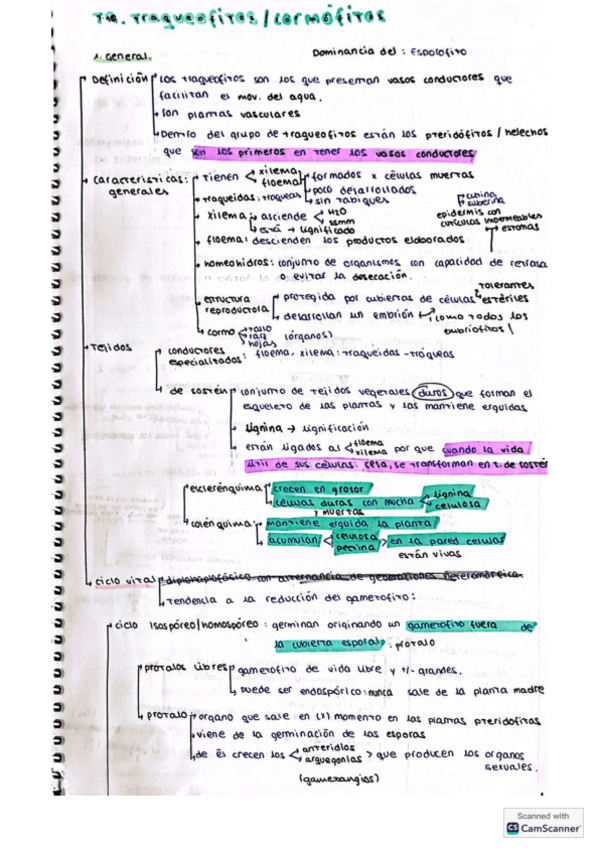 T10. Traqueofitos / cormófitos
1. General.
Dominancia del: Esporofito
Definición los traqueofitos son los que presentan vasos conductores que
facilitan el mov. del agua.
son plantas vasculares
Dentro del grupo de traqueofitos están los pteridófitos / helechos
que son los primeros en tener los vasos conductores
características generales: tienen xilema floema formados x células muertas
traqueidas: traqueas poco desarrollados
sin tabiques
cutina
suberina
xilema asciende H2O
ssmm
está → lignificado
epidermis con
cutículas impermeables
estomas
floema: descienden los productos elaborados
homeohidros: conjunto de organismos con capacidad de retrasa
o evitar la desecación.
tolerantes
estructura reproductora protegida por cubiertas de células estériles
desarrollan un embrión como todos los
embriofitos
cormo tallo
raíz
hojas
(órganos)
Tejidos
conductores
especializados: floema, xilema: traqueidas - tráqueas
de sostén conjunto de tejidos vegetales duros que forman el
esqueleto de las plantas y las mantiene erguidas
Lignina → lignificación
están ligados al floema xilema por que cuando la vida
útil de sus células cesa, se transforman en t. de sostén
esclerénquima crecen en grosor
células duras con mucha lignina
celulosa
y muertas
colénquima mantiene erguida la planta
acumulan celulosa pectina en la pared celular
están vivas
ciclo vital diplohaplofásico con alternancia de generaciones heteromórfica.
tendencia a la reducción del gametofito:
ciclo Isospóreo/homospóreo: germinan originando un gametofito fuera de
la cubierta esporal: prótalo
prótalos libres gametofito de vida libre y +/- grandes.
puede ser endospórico: nunca sale de la planta madre
prótalo órgano que sale en (x) momento en las plantas pteridofitas
viene de la germinación de las esporas
de él crecen los anteridios
arquegonios que producen los organos
sexuales.
(gametangios)
Scanned with
CS CamScanner